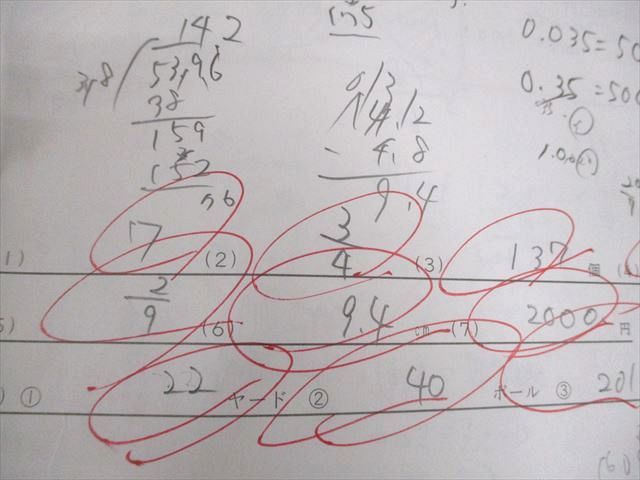 14.2
3,8 53,96
38
159
152
7,6
14,12
- 4,8
9.4
0.035=50
0.35=500
1) 17 (2) 3/4 (3) 137 個
5) 2/9 (6) 9.4 cm (7) 2000 円
) ① 22 ヤード ② 40 ポール ③ 201